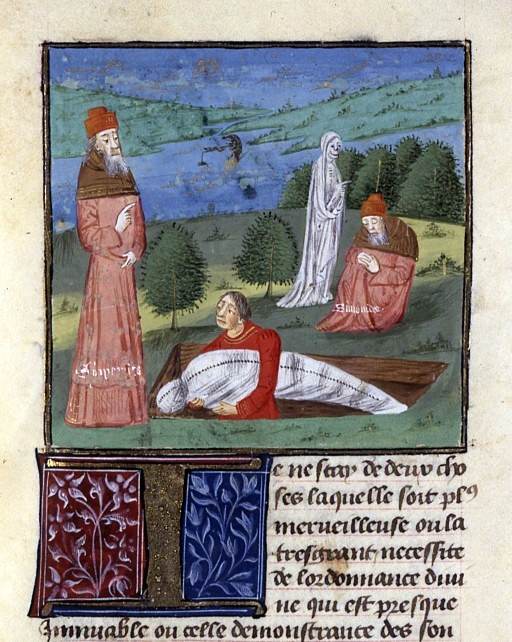 Simonides
Ie ne scay de deux cho
ses laquelle soit pl⁹
merveilleuse ou la
tresgrant necessite
de lordonnance divi
ne qui est presque
Immuable ou celle demonstrance des son